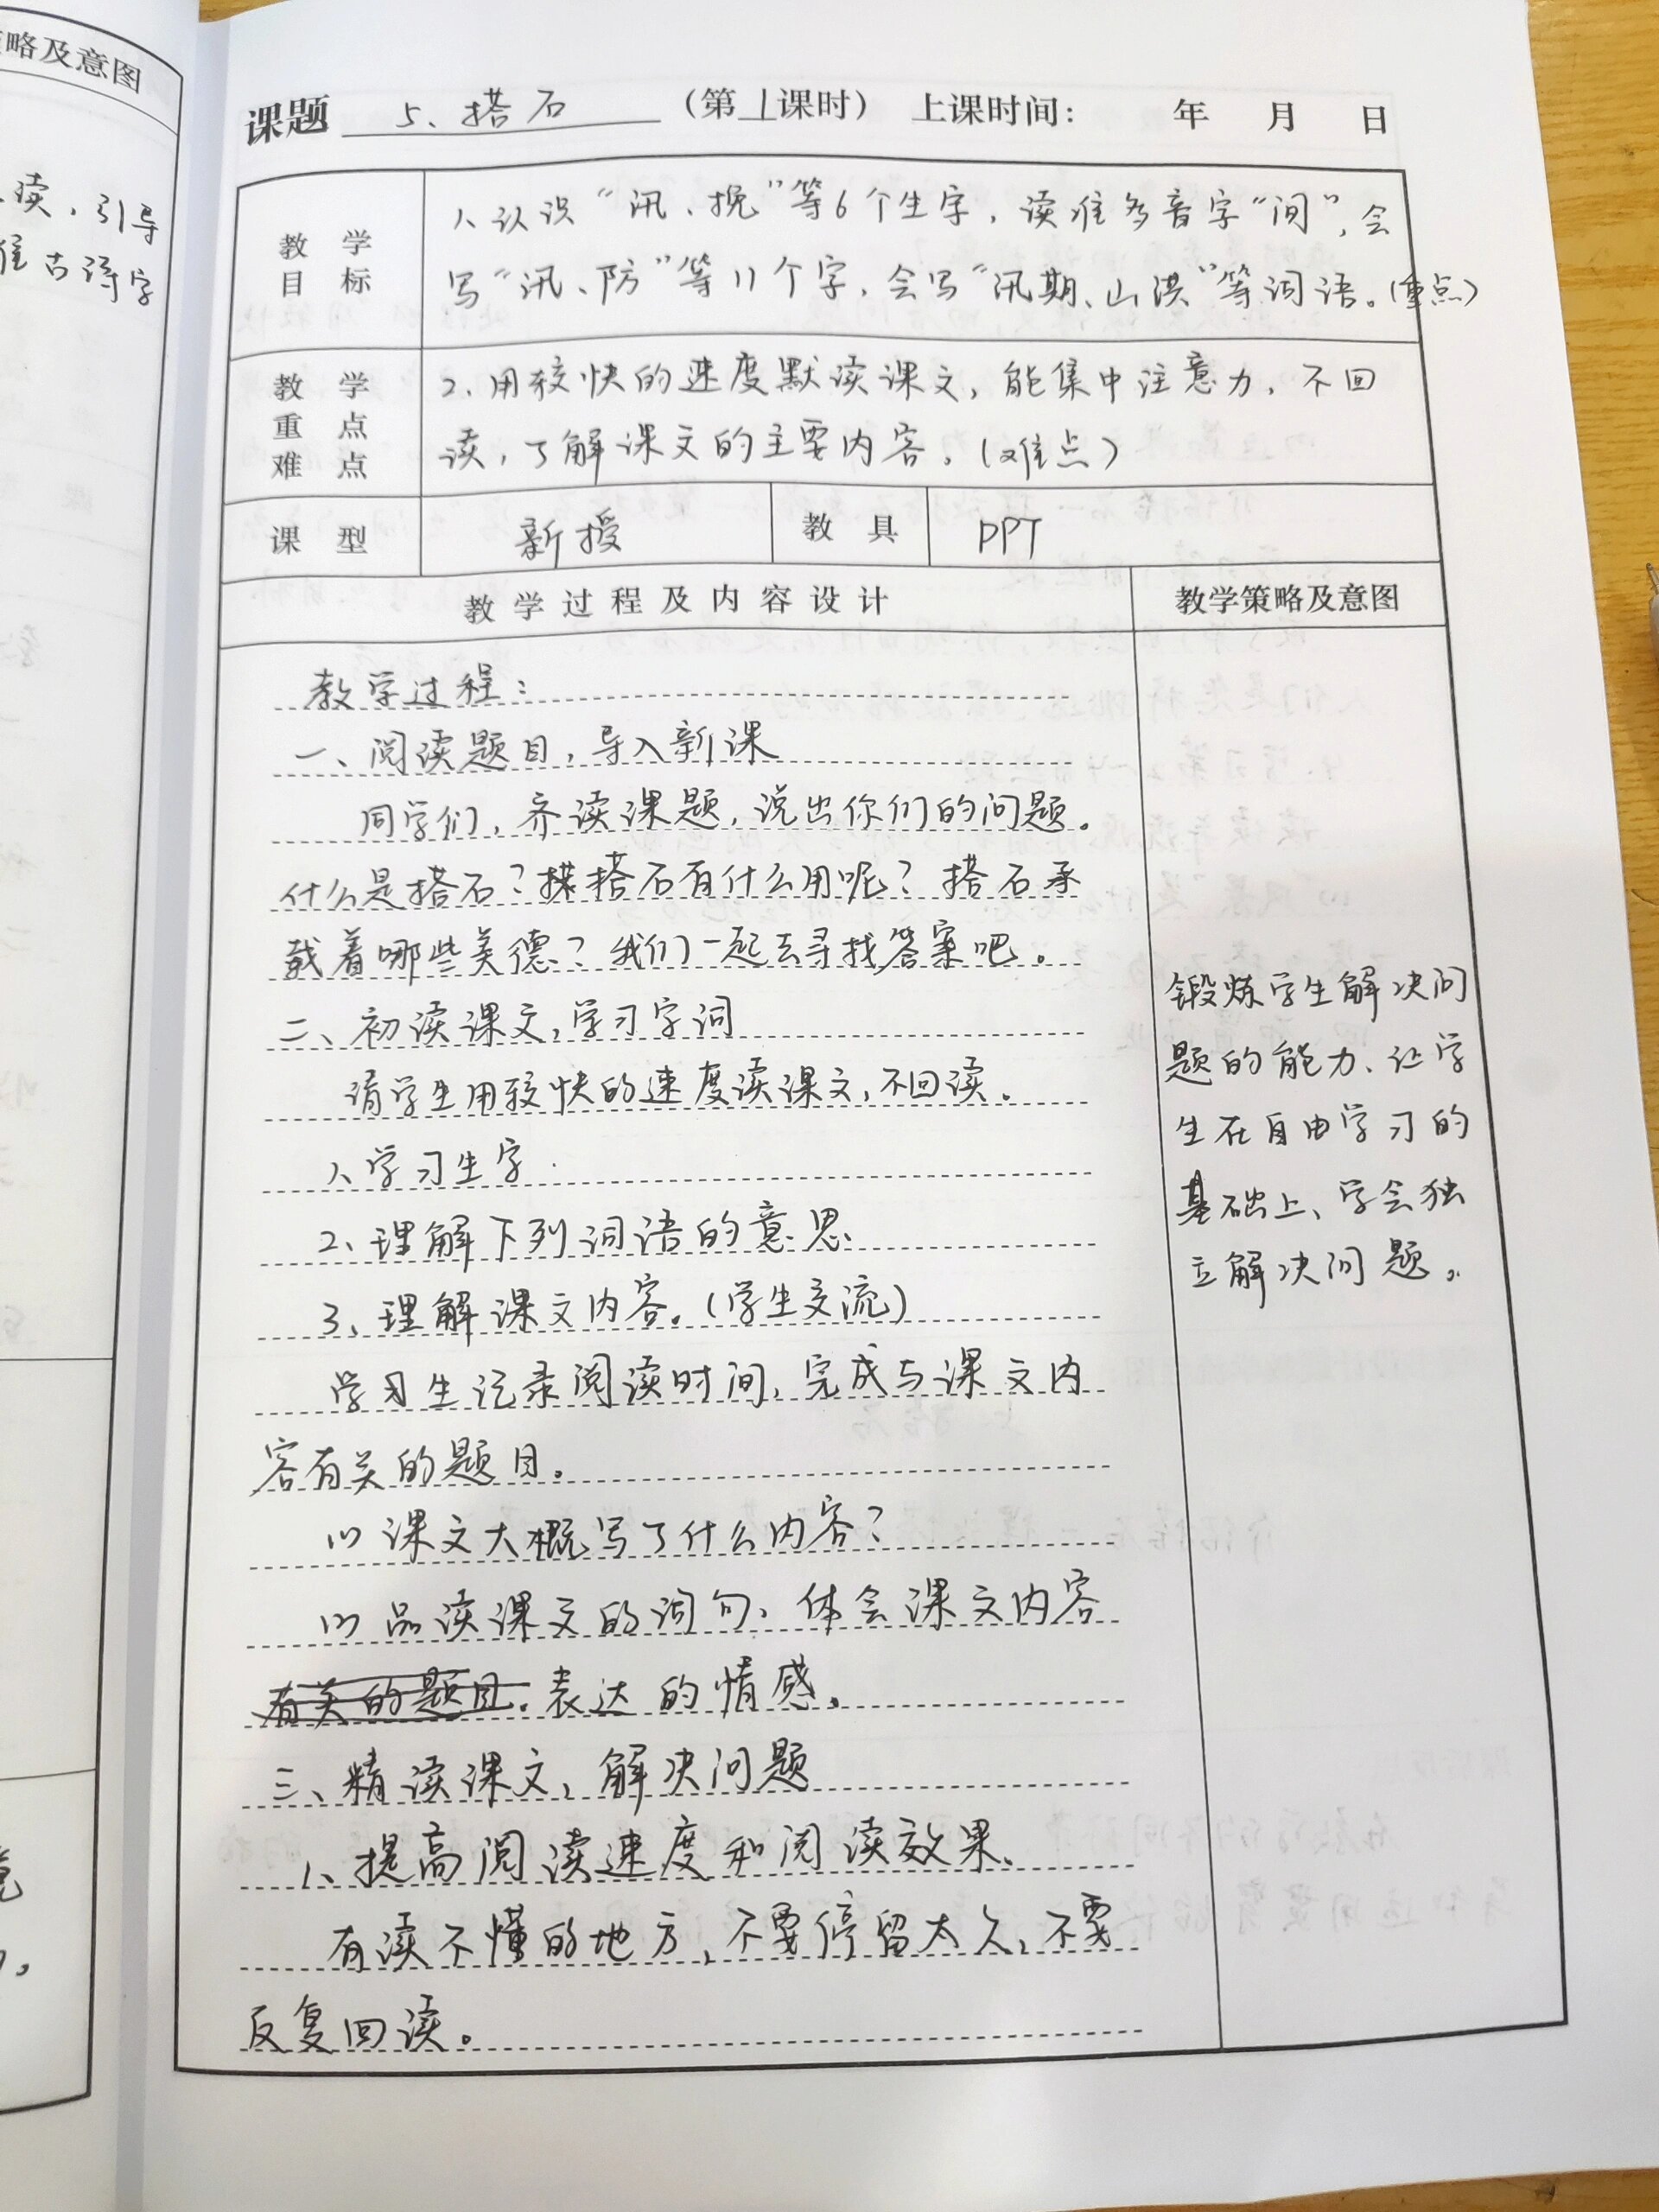 略及意图
读，引导
准古诗字
课题 5、搭石 （第1课时） 上课时间： 年 月 日
教学目标
1、认识“汛、挽”等6个生字，读准多音字“间”，会
写“汛、防”等11个字，会写“汛期、山洪”等词语。（重点）
教学重点难点
2、用较快的速度默读课文，能集中注意力，不回
读，了解课文的主要内容。（难点）
课型 新授 教具 PPT
教学过程及内容设计 教学策略及意图
教学过程：
一、阅读题目，导入新课
同学们，齐读课题，说出你们的问题。
什么是搭石？搭石有什么用呢？搭石承
载着哪些美德？我们一起去寻找答案吧。
二、初读课文，学习字词
请学生用较快的速度读课文，不回读。
1、学习生字
2、理解下列词语的意思
3、理解课文内容。（学生交流）
学习生记录阅读时间，完成与课文内
容有关的题目。
(1)课文大概写了什么内容？
(2)品读课文的词句，体会课文内容
有关的题目。表达的情感。
三、精读课文，解决问题
1、提高阅读速度和阅读效果、
有读不懂的地方，不要停留太久，不要
反复回读。
锻炼学生解决问
题的能力、让学
生在自由学习的
基础上、学会独
立解决问题。